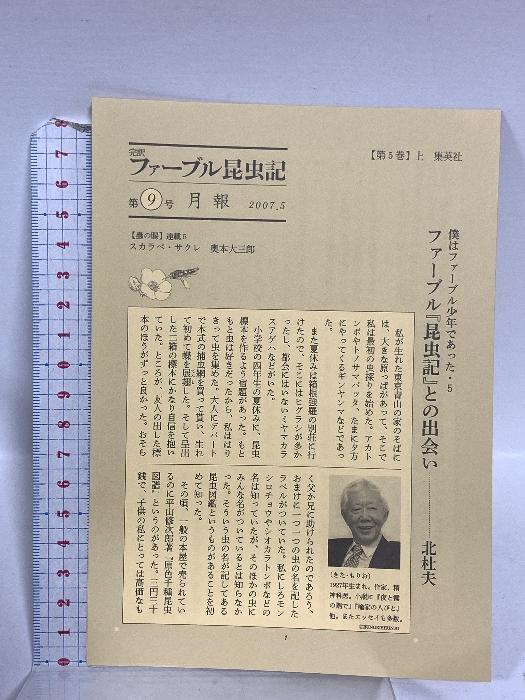 完訳
ファーブル昆虫記
第9号 月報 2007.5
【蟲の賜】連載5
スカラベ・サクレ 奥本大三郎
【第5巻】上 集英社
僕はファーブル少年であった・5
ファーブル『昆虫記』との出会い
北杜夫
私が生れた東京青山の家のそばに
は、大きな原っぱがあって、そこで
私は最初の虫採りを始めた。アカト
ンボやトノサマバッタ、たまに夕方
にやってくるギンヤンマなどであっ
た。
また夏休みは箱根強羅の別荘に行
けたので、そこにはヒグラシが多か
ったし、都会にはいないミヤマカラ
スアゲハなどがいた。
小学校の四年生の夏休みに、昆虫
標本を作るよう宿題があった。もと
もと虫は好きだったから、私ははり
きって虫を集めた。大人にデパート
で本式の捕虫網を買って貰い、生れ
て初めて蝶を展翅した。そして呈出
した二箱の標本にかなり自信を抱い
ていた。ところが、友人の出した標
本のほうがずっと良かった。おそら
く父か兄に助けられたのであろう、
おまけに一つ一つの虫の名を記した
ラベルがついていた。私にしろモン
シロチョウやシオカラトンボなどの
名は知っていたが、そのほかの虫に
みんな名がついているとは知らなか
った。そういう虫の名が記してある
昆虫図鑑というものがあることを初
めて知った。
その頃、一般の本屋で売られてい
るのに平山修次郎著『原色千種昆虫
図譜』というのがあった。三円三十
銭で、子供の私にとっては高価なも
(きた・もりお)
1927年生まれ。作家、精
神科医。小説に『夜と霧
の隅で』『楡家の人びと』
他。またエッセイも多数。
1
0 1 2 3 4 5 6 7 8 9 10 1 2 3 4 5 6 7 8